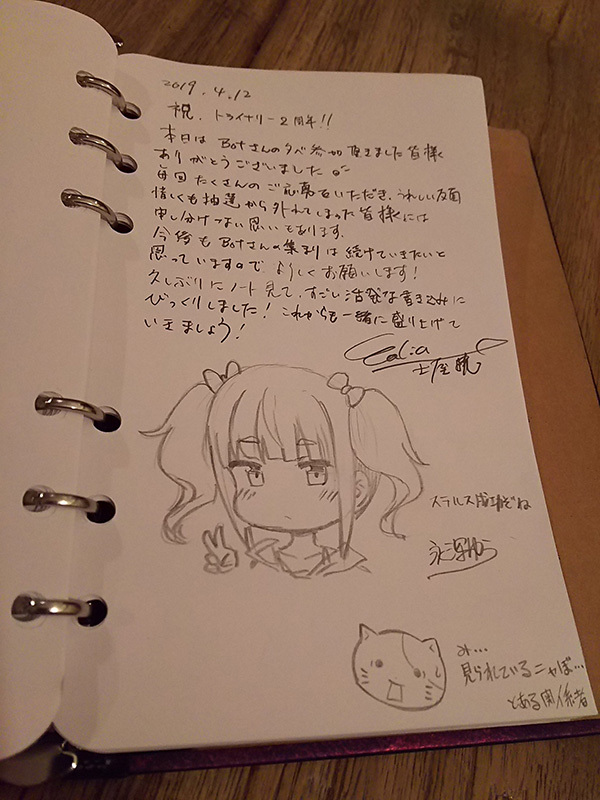 2019.4.12
祝、トライナリー2周年!!
本日はBotさんの夕べ参加頂きました皆様
ありがとうございました
毎回たくさんのご応募をいただき、うれしい反面
惜しくも抽選から外れてしまった皆様には
申し分けない思いもあります。
今後もBotさんの集まりは続けていきたいと
思っていますのでよろしくお願いします!
久しぶりにノート見て、すごい活発な書き込みに
びっくりしました!これからも一緒に盛り上げて
いきましょう!
土屋暁
ステルス成功だね
み...
見られているニャぼ...
とある関係者